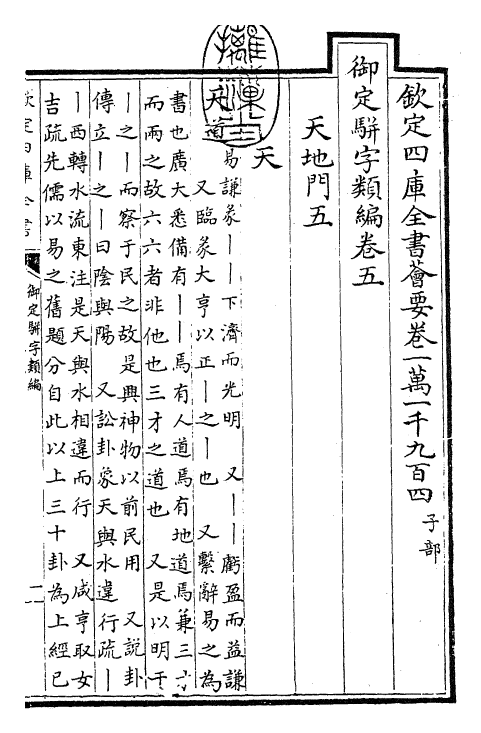 欽定四庫全書薈要卷一萬一千九百四 子部
御定駢字類編卷五
天地門五
天
天道 易謙彖丨丨下濟而光明 又丨丨虧盈而益謙
又臨彖大亨以正丨之丨也 又繫辭易之為
書也廣大悉備有丨丨焉有人道焉有地道焉兼三才
而兩之故六六者非他也三才之道也 又是以明于
丨之丨而察于民之故是興神物以前民用 又說卦
傳立丨之丨曰陰與陽 又訟卦彖天與水違行疏丨
丨西轉水流東注是天與水相違而行 又咸亨取女
吉疏先儒以易之舊題分自此以上三十卦為上經已
欽定四庫全書
御定駢字類編